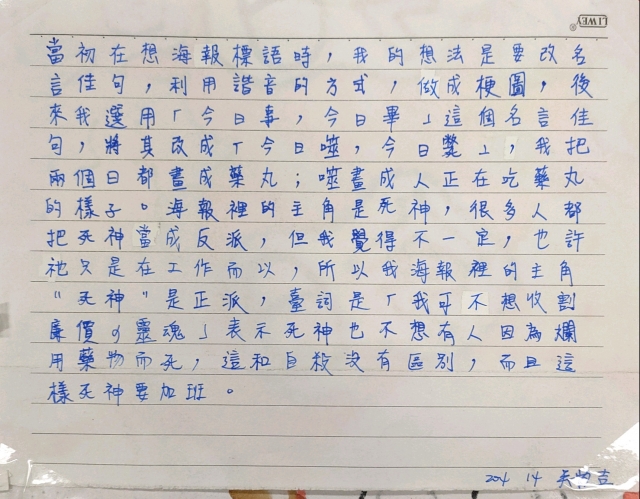 LIWEY
當初在想海報標語時，我的想法是要改名
言佳句，利用諧音的方式，做成梗圖，後
來我選用「今日事，今日畢」這個名言佳
句，將其改成「今日噬，今日斃」，我把
兩個日都畫成藥丸；噬畫成人正在吃藥丸
的樣子。海報裡的主角是死神，很多人都
把死神當成反派，但我覺得不一定，也許
祂只是在工作而以，所以我海報裡的主角
“死神”是正派，臺詞是「我可不想收割
廉價的靈魂」表示死神也不想有人因為爛
用藥物而死，這和自殺沒有區別，而且這
樣死神要加班。
204 14 吉